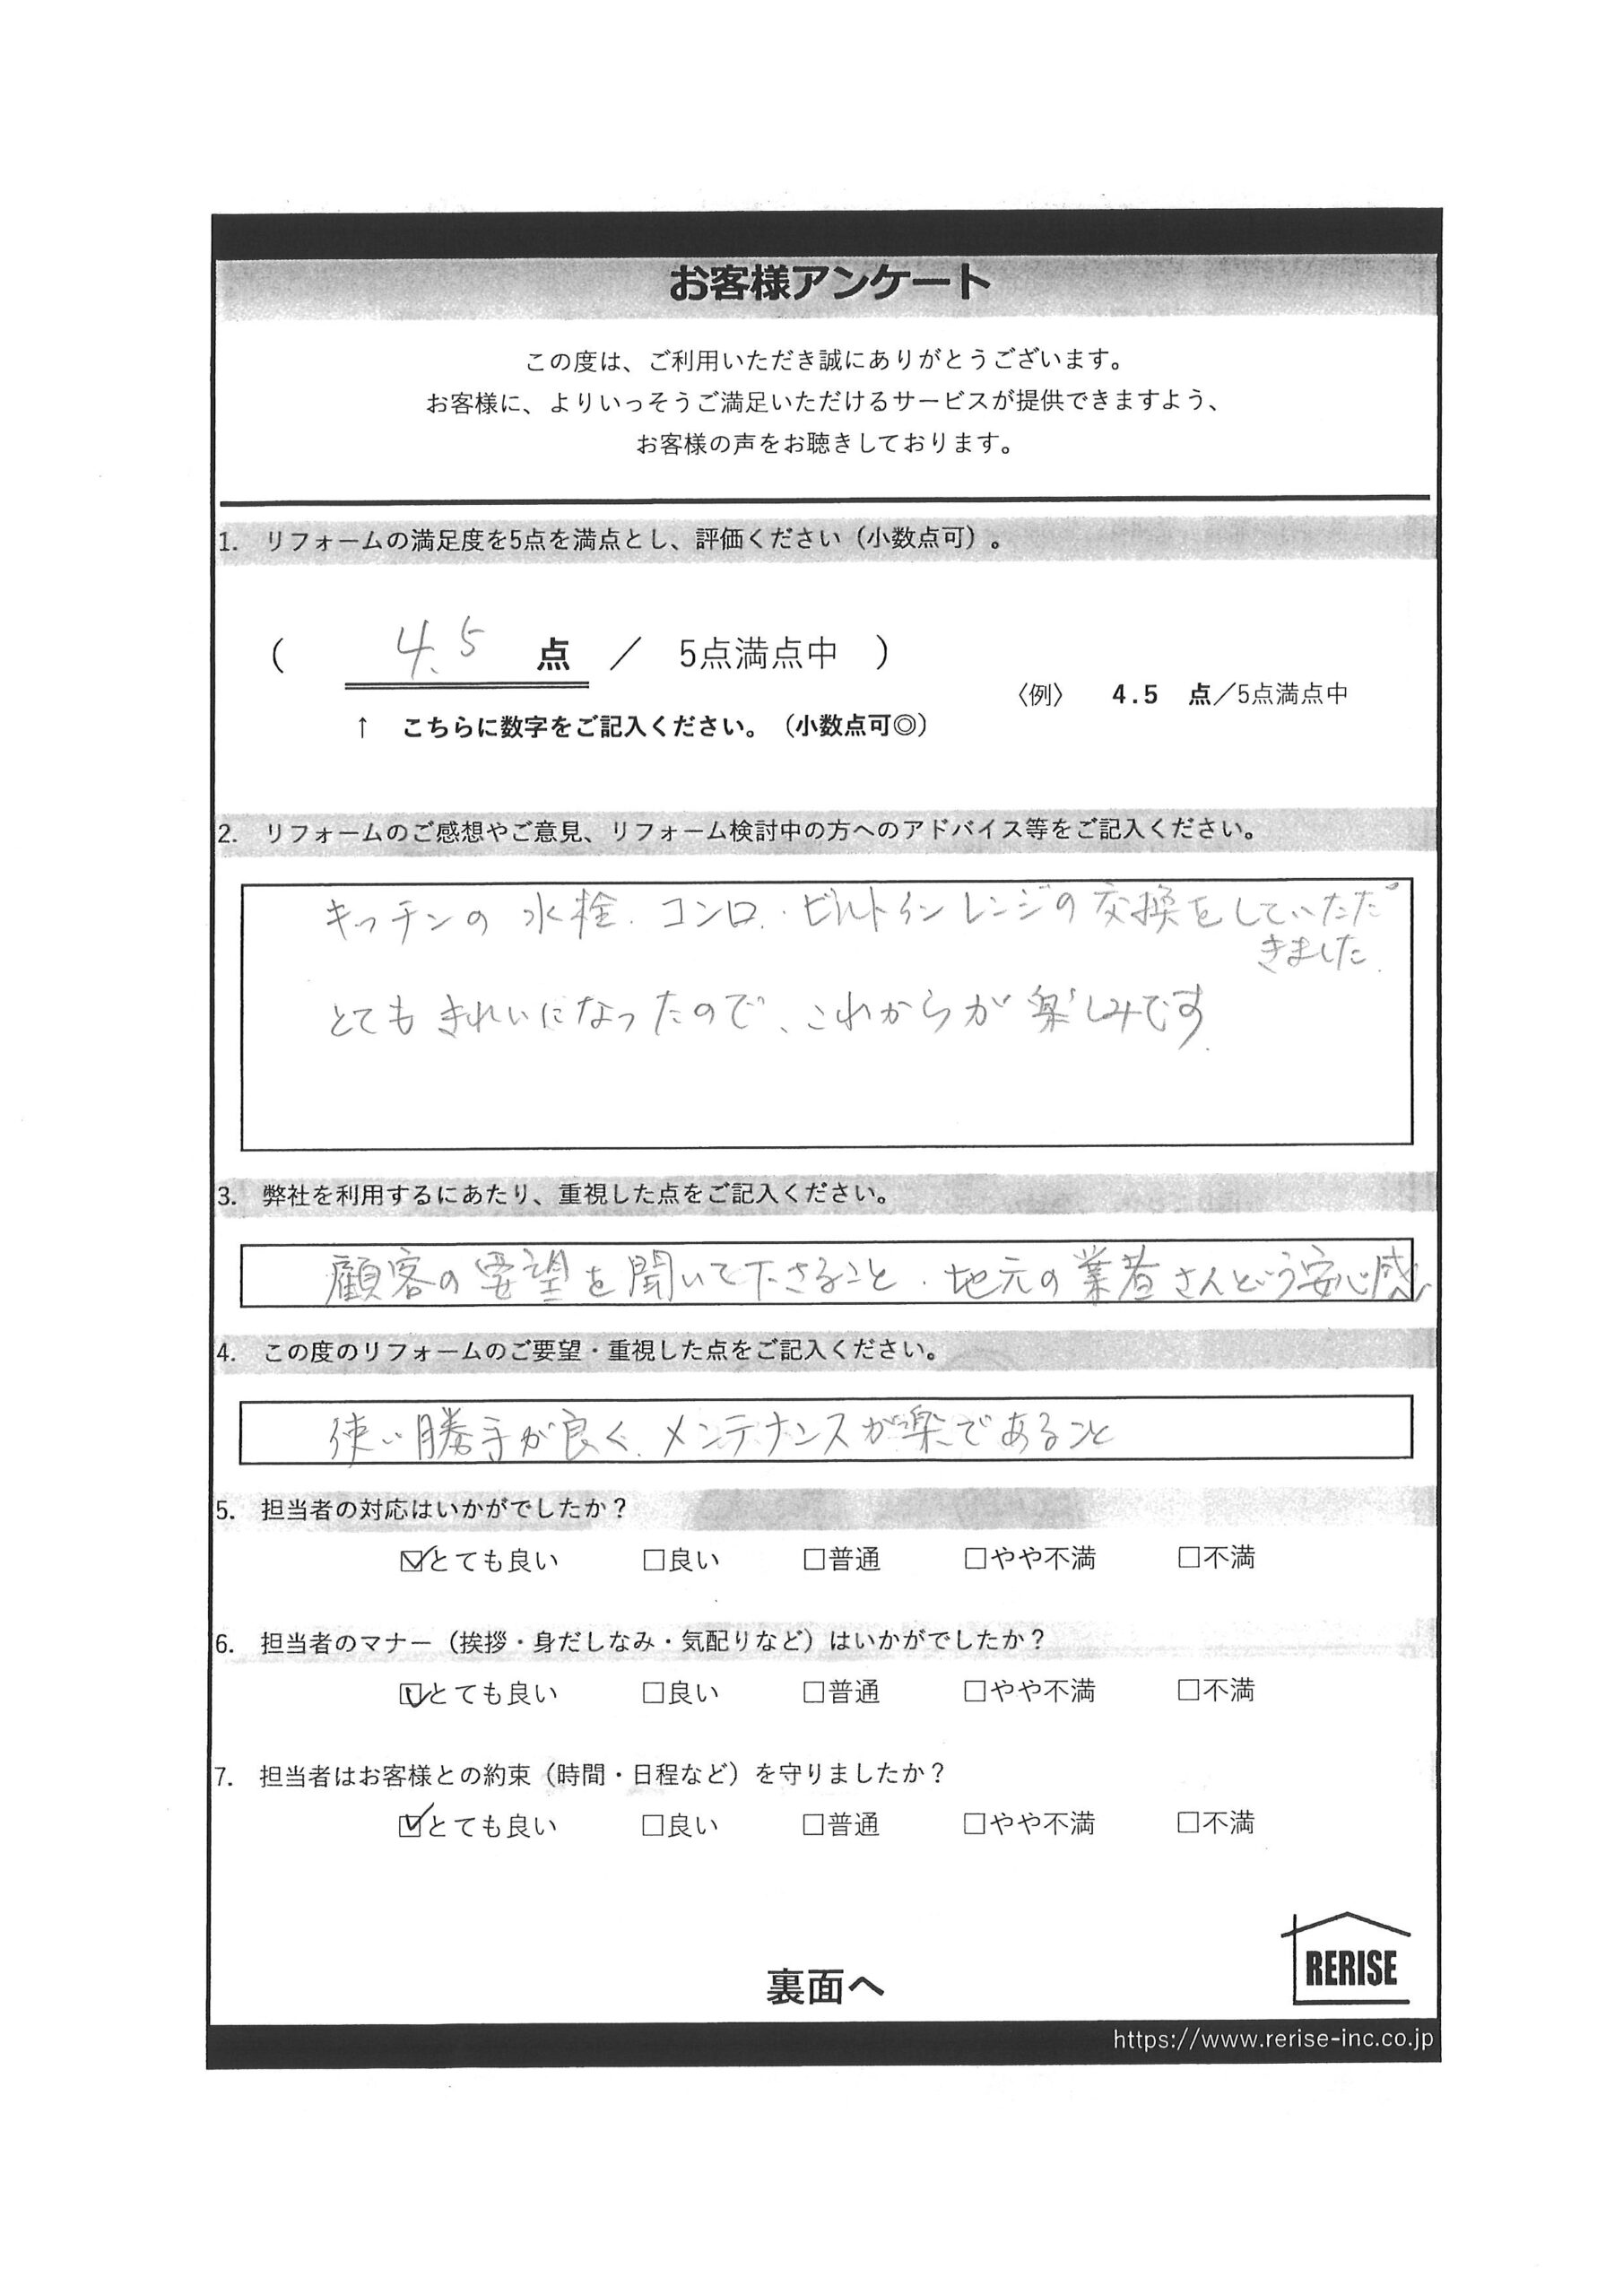 お客様アンケート
この度は、ご利用いただき誠にありがとうございます。
お客様に、よりいっそうご満足いただけるサービスが提供できますよう、
お客様の声をお聴きしております。
1. リフォームの満足度を5点を満点とし、評価ください（小数点可）。
( 4.5 点 ／ 5点満点中 )
〈例〉 4.5 点／5点満点中
↑ こちらに数字をご記入ください。（小数点可◎）
2. リフォームのご感想やご意見、リフォーム検討中の方へのアドバイス等をご記入ください。
キッチンの水栓．コンロ．ビルトインレンジの交換をしていただ
きました．
とてもきれいになったので、これからが楽しみです．
3. 弊社を利用するにあたり、重視した点をご記入ください。
顧客の要望を聞いて下さること．地元の業者さんという安心感
4. この度のリフォームのご要望・重視した点をご記入ください。
使い勝手が良く．メンテナンスが楽であること
5. 担当者の対応はいかがでしたか？
☑とても良い □良い □普通 □やや不満 □不満
6. 担当者のマナー（挨拶・身だしなみ・気配りなど）はいかがでしたか？
☑とても良い □良い □普通 □やや不満 □不満
7. 担当者はお客様との約束（時間・日程など）を守りましたか？
☑とても良い □良い □普通 □やや不満 □不満
RERISE
裏面へ
https://www.rerise-inc.co.jp